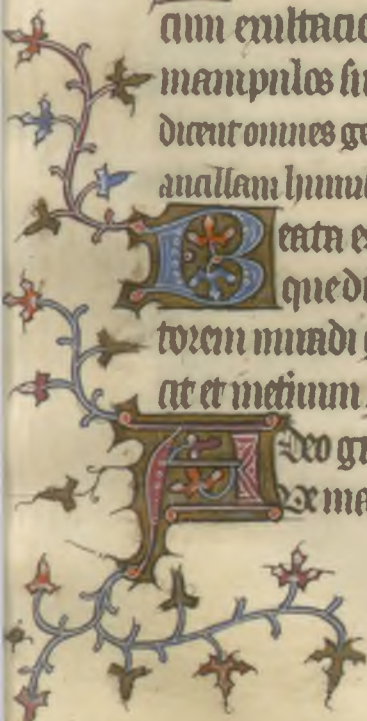 cum exultacio
manipulos su
dicent omnes ge
ancillam humil
Beata es
que d
torem mundi g
cit et
A Deo gr
Ave ma